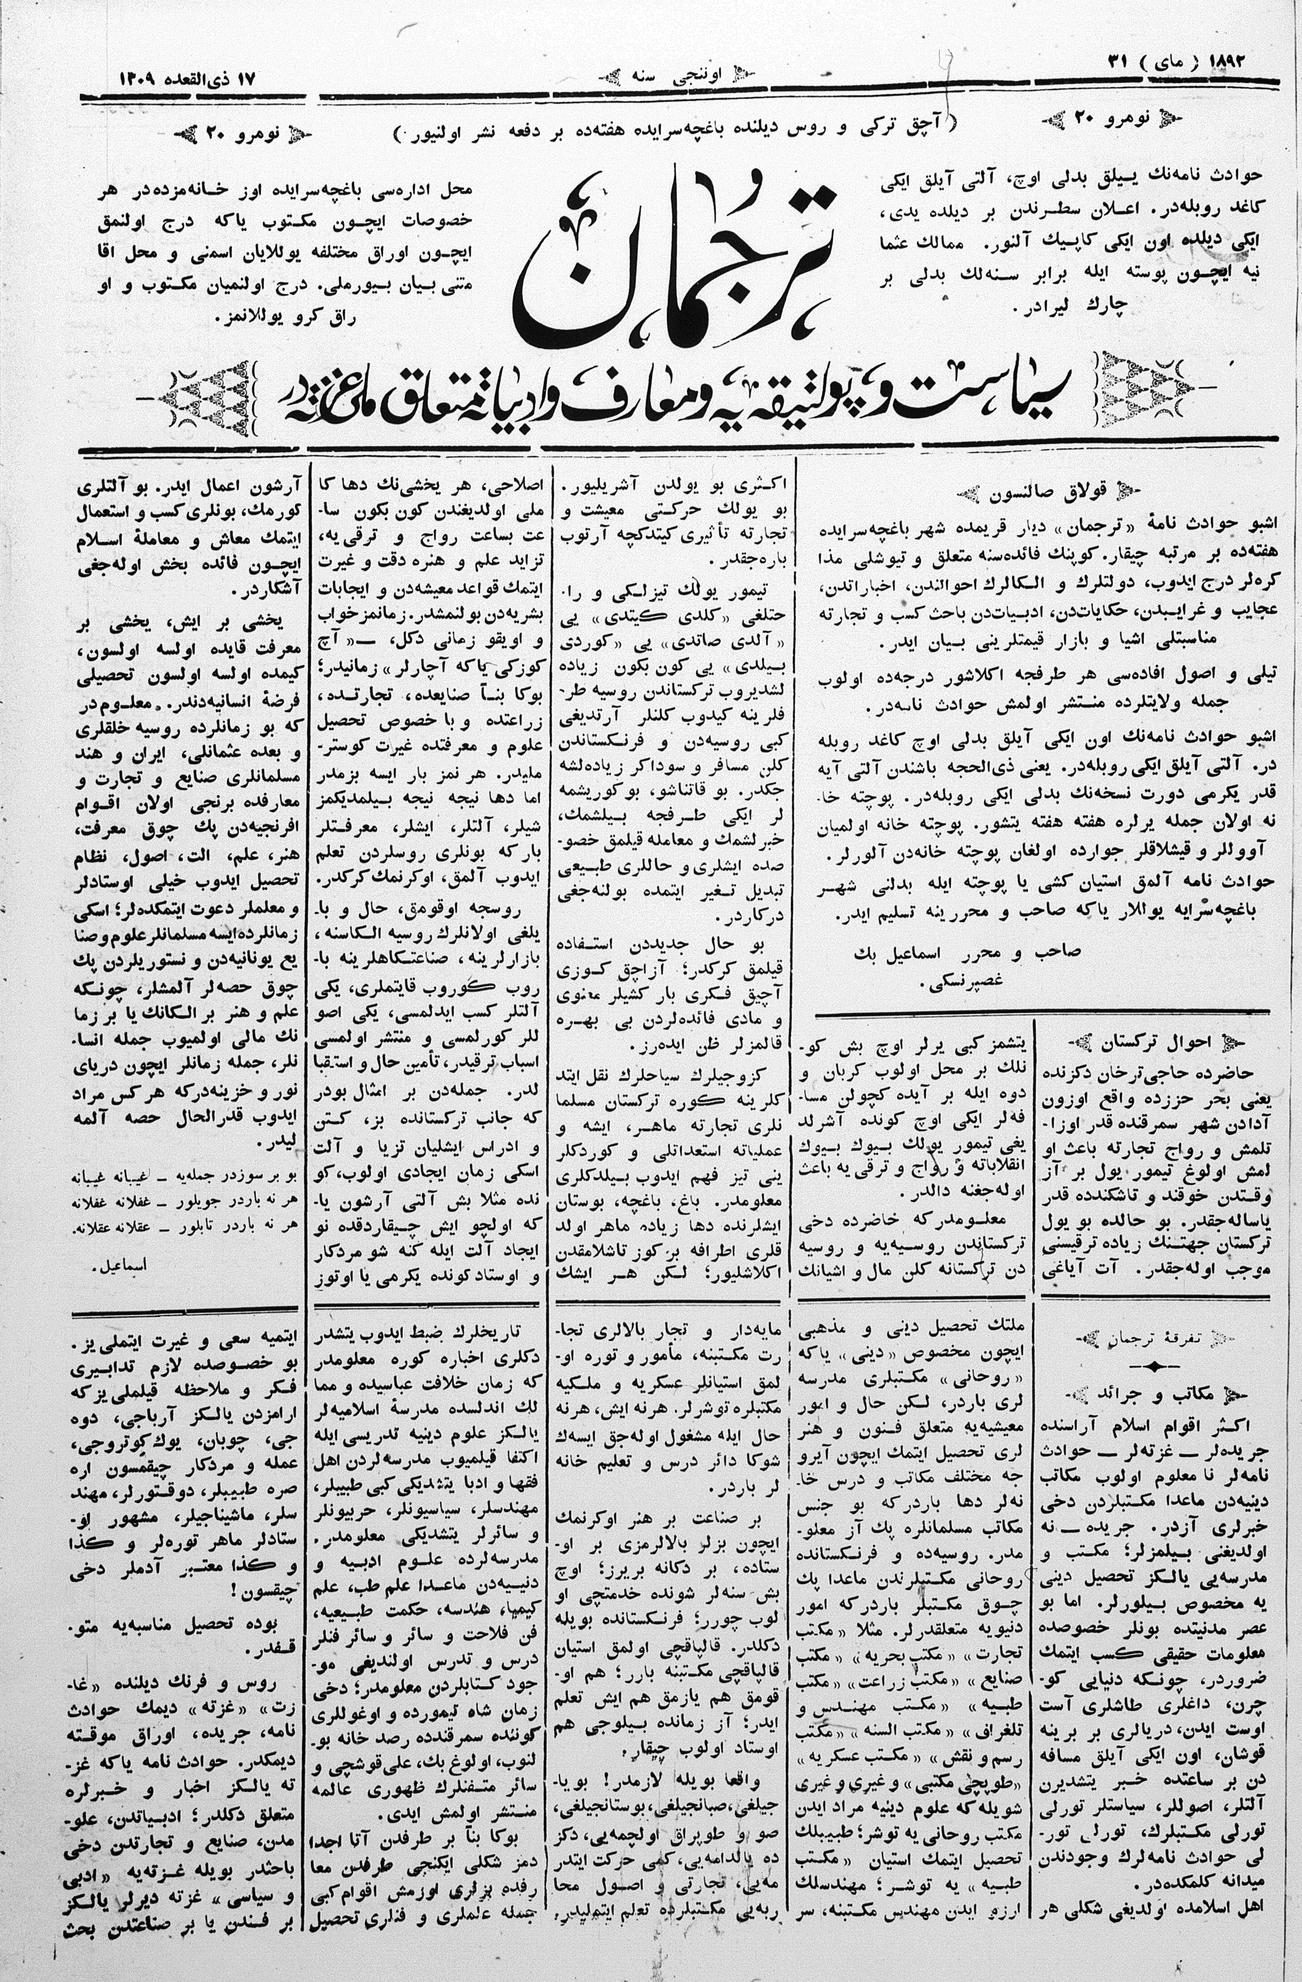 ١٨٩٢ ( مای ) ٣١
اوننجی سنه
١٧ ذی القعده ١٣٠٩
نومرو ٢٠
( آچق ترکی و روس دیلنده باغچه‌سرایده هفته‌ده بر دفعه نشر اولنیور )
نومرو ٢٠
حوادث نامه‌نك ییلق بدلی اوچ، آلتی آیلق ایکی
کاغد روبله‌در. اعلان سطرندن بر دیلده یدی،
ایکی دیلده اون ایکی کاپیك آلنور. ممالك عثما
نیه ایچون پوسته ایله برابر سنه‌لك بدلی بر
چارك لیرادر.
ترجمان
محل اداره‌سی باغچه‌سرایده اوز خانه‌مزده‌در هر
خصوصات ایچون مکتوب یاکه درج اولنمق
ایچون اوراق مختلفه یوللایان اسمنی و محل اقا
متنی بیان بیورملی. درج اولنمیان مکتوب و او
راق کرو یوللانمز.
سیاست و پولتیقه‌یه و معارف و ادبیاته متعلق ملی غزته‌در
قولاق صالنسون
اشبو حوادث نامهٔ «ترجمان» دیار قریمده شهر باغچه‌سرایده
هفته‌ده بر مرتبه چیقار. کوپنك فائده‌سنه متعلق و تیوشلی مذا
کره‌لر درج ایدوب، دولتلرك و الکالرك احوالندن، اخباراتدن،
عجایب و غرایبدن، حکایات‌دن، ادبیات‌دن باحث کسب و تجارته
مناسبتلی اشیا و بازار قیمتلرینی بیان ایدر.
تیلی و اصول افاده‌سی هر طرفجه اکلاشور درجه‌ده اولوب
جمله ولایتلرده منتشر اولمش حوادث نامه‌در.
اشبو حوادث نامه‌نك اون ایکی آیلق بدلی اوچ کاغد روبله
در. آلتی آیلق ایکی روبله‌در. یعنی ذی‌الحجه باشندن آلتی آیه
قدر یکرمی دورت نسخه‌نك بدلی ایکی روبله‌در. پوچته خا-
نه اولان جمله یرلره هفته هفته یتشور. پوچته خانه اولمیان
آووللر و قیشلاقلر جوارده اولغان پوچته خانه‌دن آلورلر.
حوادث نامه آلمق استیان کشی یا پوچته ایله بدلنی شهر
باغچه‌سرایه یوللار یاکه صاحب و محررینه تسلیم ایدر.
صاحب و محرر اسماعیل بك
غصپرنسکی.
احوال ترکستان
حاضرده حاجی‌ترخان دکزنده
یعنی بحر حزرده واقع اوزون
آدادن شهر سمرقنده قدر اوزا-
تلمش و رواج تجارته باعث او
لمش اولوغ تیمور یول بر آز
وقتدن خوقند و تاشکنده قدر
یاساله‌جقدر. بو حالده بو یول
ترکستان جهتنك زیاده ترقیسنی
موجب اوله‌جقدر. آت آیاغی
یتشمز کبی یرلر اوچ بش کو-
نلك بر محل اولوب کربان و
دوه ایله بر آیده کچولن مسا-
فه‌لر ایکی اوچ کونده آشرلد
یغی تیمور یولك بیوك بیوك
انقلاباته و رواج و ترقی‌یه باعث
اوله‌جغنه دالدر.
معلومدرکه خاضرده دخی
ترکستاندن روسیه‌یه و روسیه
دن ترکستانه کلن مال و اشیانك
اکثری بو یولدن آشریلیور.
بو یولك حرکتی معیشت و
تجارته تأثیری کیتدکچه آرتوب
باره‌جقدر.
تیمور یولك تیزلکی و را-
حتلغی «کلدی کیتدی» یی
«آلدی صاتدی» یی «کوردی
بیلدی» یی کون بکون زیاده
لشدیروب ترکستاندن روسیه طر-
فلرینه کیدوب کلنلر آرتدیغی
کبی روسیه‌دن و فرنکستاندن
کلن مسافر و سوداکر زیاده‌لشه
جکدر. بو قاتناشو، بو کوریشمه
لر ایکی طرفجه بیلشمك،
خبرلشمك و معامله قیلمق خصو-
صده ایشلری و حاللری طبیعی
تبدیل تغیر ایتمده بولنه‌جغی
درکاردر.
بو حال جدیددن استفاده
قیلمق کرکدر؛ آزاچق کوزی
آچیق فکری بار کشیلر معنوی
و مادی فائده‌لردن بی بهره
قالمزلر ظن ایده‌رز.
کزوجیلرك سیاحلرك نقل ایتد
کلرینه کوره ترکستان مسلما
نلری تجارته ماهر، ایشه و
عملیاته استعداتلی و کوردکلر
ینی تیز فهم ایدوب بیلدکلری
معلومدر. باغ، باغچه، بوستان
ایشلرنده دها زیاده ماهر اولد
قلری اطرافه بر کوز تاشلامقدن
اکلاشلیور؛ لکن هر ایشك
اصلاحی، هر یخشی‌نك دها کا
ملی اولدیغندن کون بکون سا-
عت بساعت رواج و ترقی‌یه،
تزاید علم و هنره دقت و غیرت
ایتمك قواعد معیشه‌دن و ایجابات
بشریه‌دن بولنمشدر. زمانمز خواب
و اویقو زمانی دکل، — «آچ
کوزکی یاکه آچارلر» زمانیدر؛
بوکا بنأ صنایعده، تجارتده،
زراعتده و با خصوص تحصیل
علوم و معرفتده غیرت کوستر-
ملیدر. هر نمز بار ایسه بزمدر
اما دها نیجه نیجه بیلمدیکمز
شیلر، آلتلر، ایشلر، معرفتلر
بارکه بونلری روسلردن تعلم
ایدوب آلمق، اوکرنمك کرکدر.
روسجه اوقومق، حال و با-
یلغی اولانلرك روسیه الکاسنه،
بازارلرینه، صناعتکاهلرینه با-
روب کوروب قایتملری، یکی
آلتلر کسب ایدلمسی، یکی اصو
للر کورلمسی و منتشر اولمسی
اسباب ترقیدر، تأمین حال و استقبا
لدر. جمله‌دن بر امثال بودر
که جانب ترکستانده بز، کتن
و ادراس ایشلیان تزیا و آلت
اسکی زمان ایجادی اولوب، کو
نده مثلا بش آلتی آرشون یا-
که اولچو ایش چیقاردقده نو
ایجاد آلت ایله کنه شو مردکار
و اوستاد کونده یکرمی یا اوتوز
آرشون اعمال ایدر. بو آلتلری
کورمك، بونلری کسب و استعمال
ایتمك معاش و معاملهٔ اسلام
ایچون فائده بخش اوله‌جغی
آشکاردر.
یخشی بر ایش، یخشی بر
معرفت قایده اولسه اولسون،
کیمده اولسه اولسون تحصیلی
فرضهٔ انسانیه‌دندر. معلوم‌در
که بو زمانلرده روسیه خلقلری
و بعده عثمانلی، ایران و هند
مسلمانلری صنایع و تجارت و
معارفده برنجی اولان اقوام
افرنجیه‌دن پك چوق معرفت،
هنر، علم، الت، اصول، نظام
تحصیل ایدوب خیلی اوستادلر
و معلملر دعوت ایتمکده‌لر؛ اسکی
زمانلرده ایسه مسلمانلر علوم و صنا
یع یونانیه‌دن و نستوریلردن پك
چوق حصه‌لر آلمشلر، چونکه
علم و هنر بر الکانك یا بر زما
نك مالی اولمیوب جمله انسا-
نلر، جمله زمانلر ایچون دریای
نور و خزینه‌درکه هر کس مراد
ایدوب قدرالحال حصه آلمه
لیدر.
بو بر سوزدر جمله‌یه — غیبانه غیبانه
هر نه باردر جویلور — غفلانه غفلانه
هر نه باردر تابلور — عقلانه عقلانه.
اسماعیل.
تفرقهٔ ترجمان
مکاتب و جرائد
اکثر اقوام اسلام آراسنده
جریده‌لر — غزته‌لر — حوادث
نامه‌لر نا معلوم اولوب مکاتب
دینیه‌دن ماعدا مکتبلردن دخی
خبرلری آزدر. جریده — نه
اولدیغنی بیلمزلر؛ مکتب و
مدرسه‌یی یالکز تحصیل دینی
یه مخصوص بیلورلر. اما بو
عصر مدنیتده بونلر خصوصده
معلومات حقیقی کسب ایتمك
ضروردر، چونکه دنیایی کو-
چرن، داغلری طاشلری آست
اوست ایدن، دریالری بر برینه
قوشان، اون ایکی آیلق مسافه
دن بر ساعتده خبر یتشدیرن
آلتلر، اصوللر، سیاستلر تورلی
تورلی مکتبلرك، تورلی تور-
لی حوادث نامه‌لرك وجودندن
میدانه کلمکده‌در.
اهل اسلامده اولدیغی شکلی هر
ملتك تحصیل دینی و مذهبی
ایچون مخصوص «دینی» یاکه
«روحانی» مکتبلری مدرسه
لری باردر، لکن حال و امور
معیشیه‌یه متعلق فنون و هنر
لری تحصیل ایتمك ایچون آیرو
جه مختلف مکاتب و درس خا-
نه‌لر دها باردرکه بو جنس
مکاتب مسلمانلره پك آز معلو-
مدر. روسیه‌ده و فرنکستانده
روحانی مکتبلرندن ماعدا پك
چوق مکتبلر باردرکه امور
دنیویه متعلقدرلر. مثلا «مکتب
تجارت» «مکتب بحریه» «مکتب
صنایع» «مکتب زراعت» «مکتب
طبیه» «مکتب مهندس و
تلغرافی» «مکتب السنه» «مکتب
رسم و نقش» «مکتب عسکریه»
«طوپچی مکتبی» و غیری و غیری
شویله‌که علوم دینیه مراد ایدن
مکتب روحانی یه توشر؛ طبیبلك
تحصیل ایتمك استیان «مکتب
طبیه» یه توشر؛ مهندسلك
ارزو ایدن مهندس مکتبنه، سر
مایه‌دار و تجار بالالری تجا-
رت مکتبنه، مأمور و توره او-
لمق استیانلر عسکریه و ملکیه
مکتبلره توشرلر. هرنه ایش، هرنه
حال ایله مشغول اوله‌جق ایسه‌ك
شوکا دائر درس و تعلیم خانه
لر باردر.
بر صناعت بر هنر اوکرنمك
ایچون بزلر بالالرمزی بر او-
ستاده، بر دکانه بریرز؛ اوچ
بش سنه‌لر شونده خدمتچی او
لوب چورر؛ فرنکستانده بویله
دکلدر. قالپاقچی اولمق استیان
قالپاقچی مکتبنه بارر؛ هم او-
قومق هم یازمق هم ایش تعلم
ایدر؛ آز زمانده بیلوجی هم
اوستاد اولوب چیقار.
واقعا بویله لازمدر! بویا-
جیلغی، صبانجیلغی، بوستانجیلغی،
صو و طوپراق اولچمه‌یی، دکز
ده یالدامه‌یی، کمی حرکت ایتدر
مه‌یی، تجارتی و اصول محا
ربه‌یی مکتبلرده تعلم ایتملیدر،
تاریخلرك ضبط ایدوب یتشدر
دکلری اخباره کوره معلومدر
که زمان خلافت عباسیده و مما
لك اندلسده مدرسهٔ اسلامیه‌لر
یالکز علوم دینیه تدریسی ایله
اکتفا قیلمیوب مدرسه‌لردن اهل
فقها و ادبا یتشدیکی کبی طبیبلر،
مهندسلر، سیاسیونلر، حربیونلر
و سائرلر یتشدیکی معلومدر.
مدرسه‌لرده علوم ادبیه و
دینیه‌دن ماعدا علم طب، علم
کیمیا، هندسه، حکمت طبیعیه،
فن فلاحت و سائر و سائر فنلر
درس و تدرس اولندیغی مو-
جود کتابلردن معلومدر؛ دخی
زمان شاه تیمورده و اوغوللری
کوننده سمرقندده رصد خانه بو-
لنوب، اولوغ بك، علی قوشچی و
سائر متفنلرك ظهوری عالمه
منتشر اولمش ایدی.
بوکا بنأ بر طرفدن آتا اجدا
دمز شکلی ایکنجی طرفدن معا
رفده بزلری اوزمش اقوام کبی
جمله علملری و فنلری تحصیل
ایتمیه سعی و غیرت ایتملی‌یز.
بو خصوصده لازم تدابیری
فکر و ملاحظه قیلملی‌یزکه
ارامزدن یالکز آرباجی، دوه
جی، چوبان، یوك کوتروجی،
عمله و مردکار چیقمسون اره
صره طبیبلر، دوقتورلر، مهند
سلر، ماشیناجیلر، مشهور او-
ستادلر ماهر توره‌لر و کذا
و کذا معتبر آدملر دخی
چیقسون!
بوده تحصیل مناسبه‌یه متو-
قفدر.
روس و فرنك دیلنده «غا-
زت» «غزته» دیمك حوادث
نامه، جریده، اوراق موقته
دیمکدر. حوادث نامه یاکه غز-
ته یالکز اخبار و خبرلره
متعلق دکلدر؛ ادبیاتدن، علو-
مدن، صنایع و تجارتدن دخی
باحثدر بویله غزته‌یه «ادبی
و سیاسی» غزته دیرلر یالکز
بر فندن یا بر صناعتدن بحث